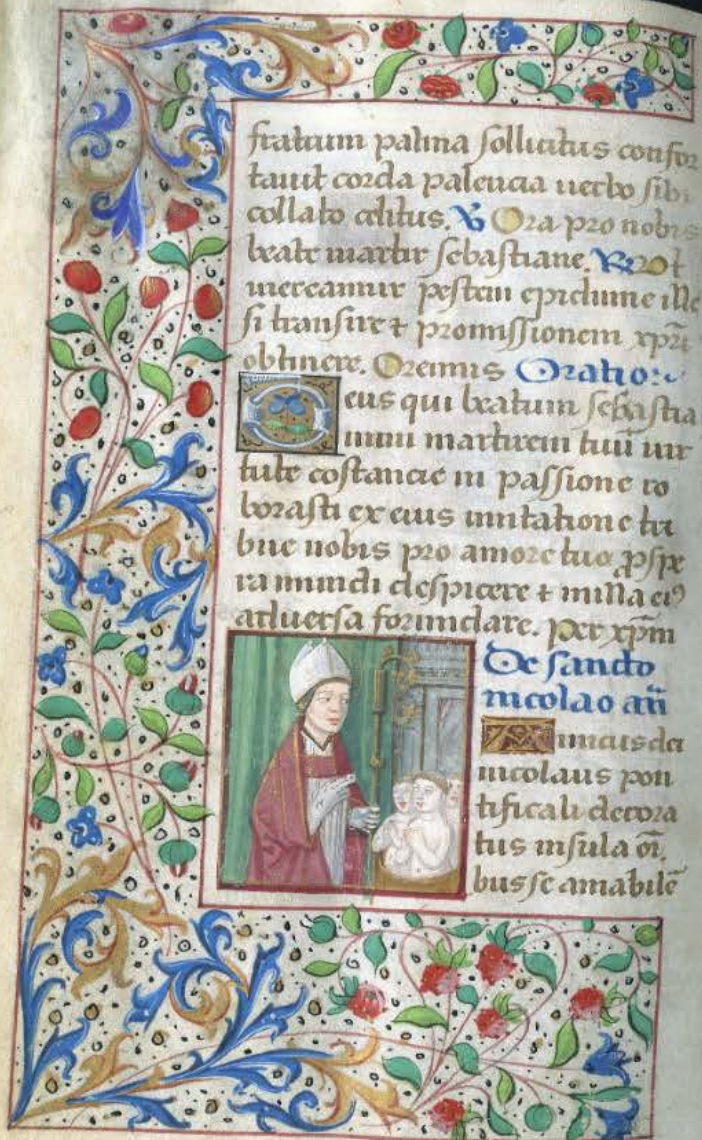 fratrum palma sollicitus confor
tauit corda palencia uerbo sibi
collato celitus. ℣ Ora pro nobis
beate martir sebastiane. ℟ Vt
mereamur pestem epidimie ille
si transire ⁊ promissionem xpi
obtinere. Oremus Oratio:
Deus qui beatum sebastia
num martirem tuū uir
tute costancie in passione ro
borasti ex eius imitatione tri
bue nobis pro amore tuo ꝓspe
ra mundi despicere ⁊ nulla eiꝰ
aduersa formidare. per xpm
De sancto
nicolao añ
Amicus dei
nicolaus pon
tificali decora
tus insula oī
bus se amabilē